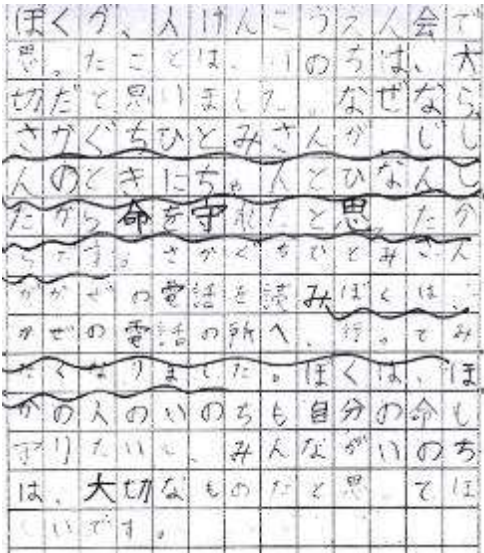 ぼくが、人けんこうえん会で
思ったことは、いのちは、大
切だと思いました。なぜなら、
さかぐちひとみさんが、じし
んのときにちゃんとひなんし
たから命を守れたと思ったか
らです。さかぐちひとみさん
がかぜの電話を読みぼくは、
かぜの電話の所へ、行ってみ
たくなりました。ぼくは、ほ
かの人のいのちも自分の命も
守りたいし、みんながいのち
は、大切なものだと思ってほ
しいです。